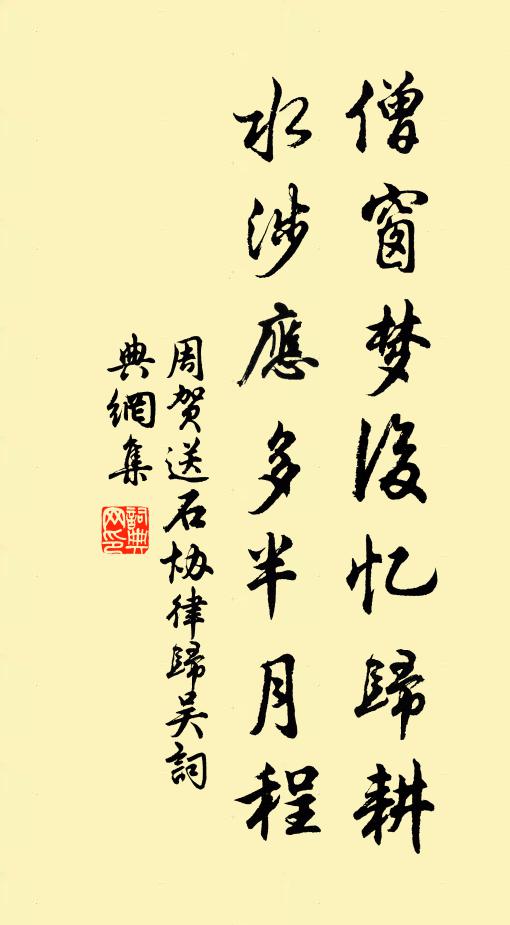 僧窗梦後忆歸耕
水涉應多半月程
周贺送石协律歸吴詞
典網集
詞典网印